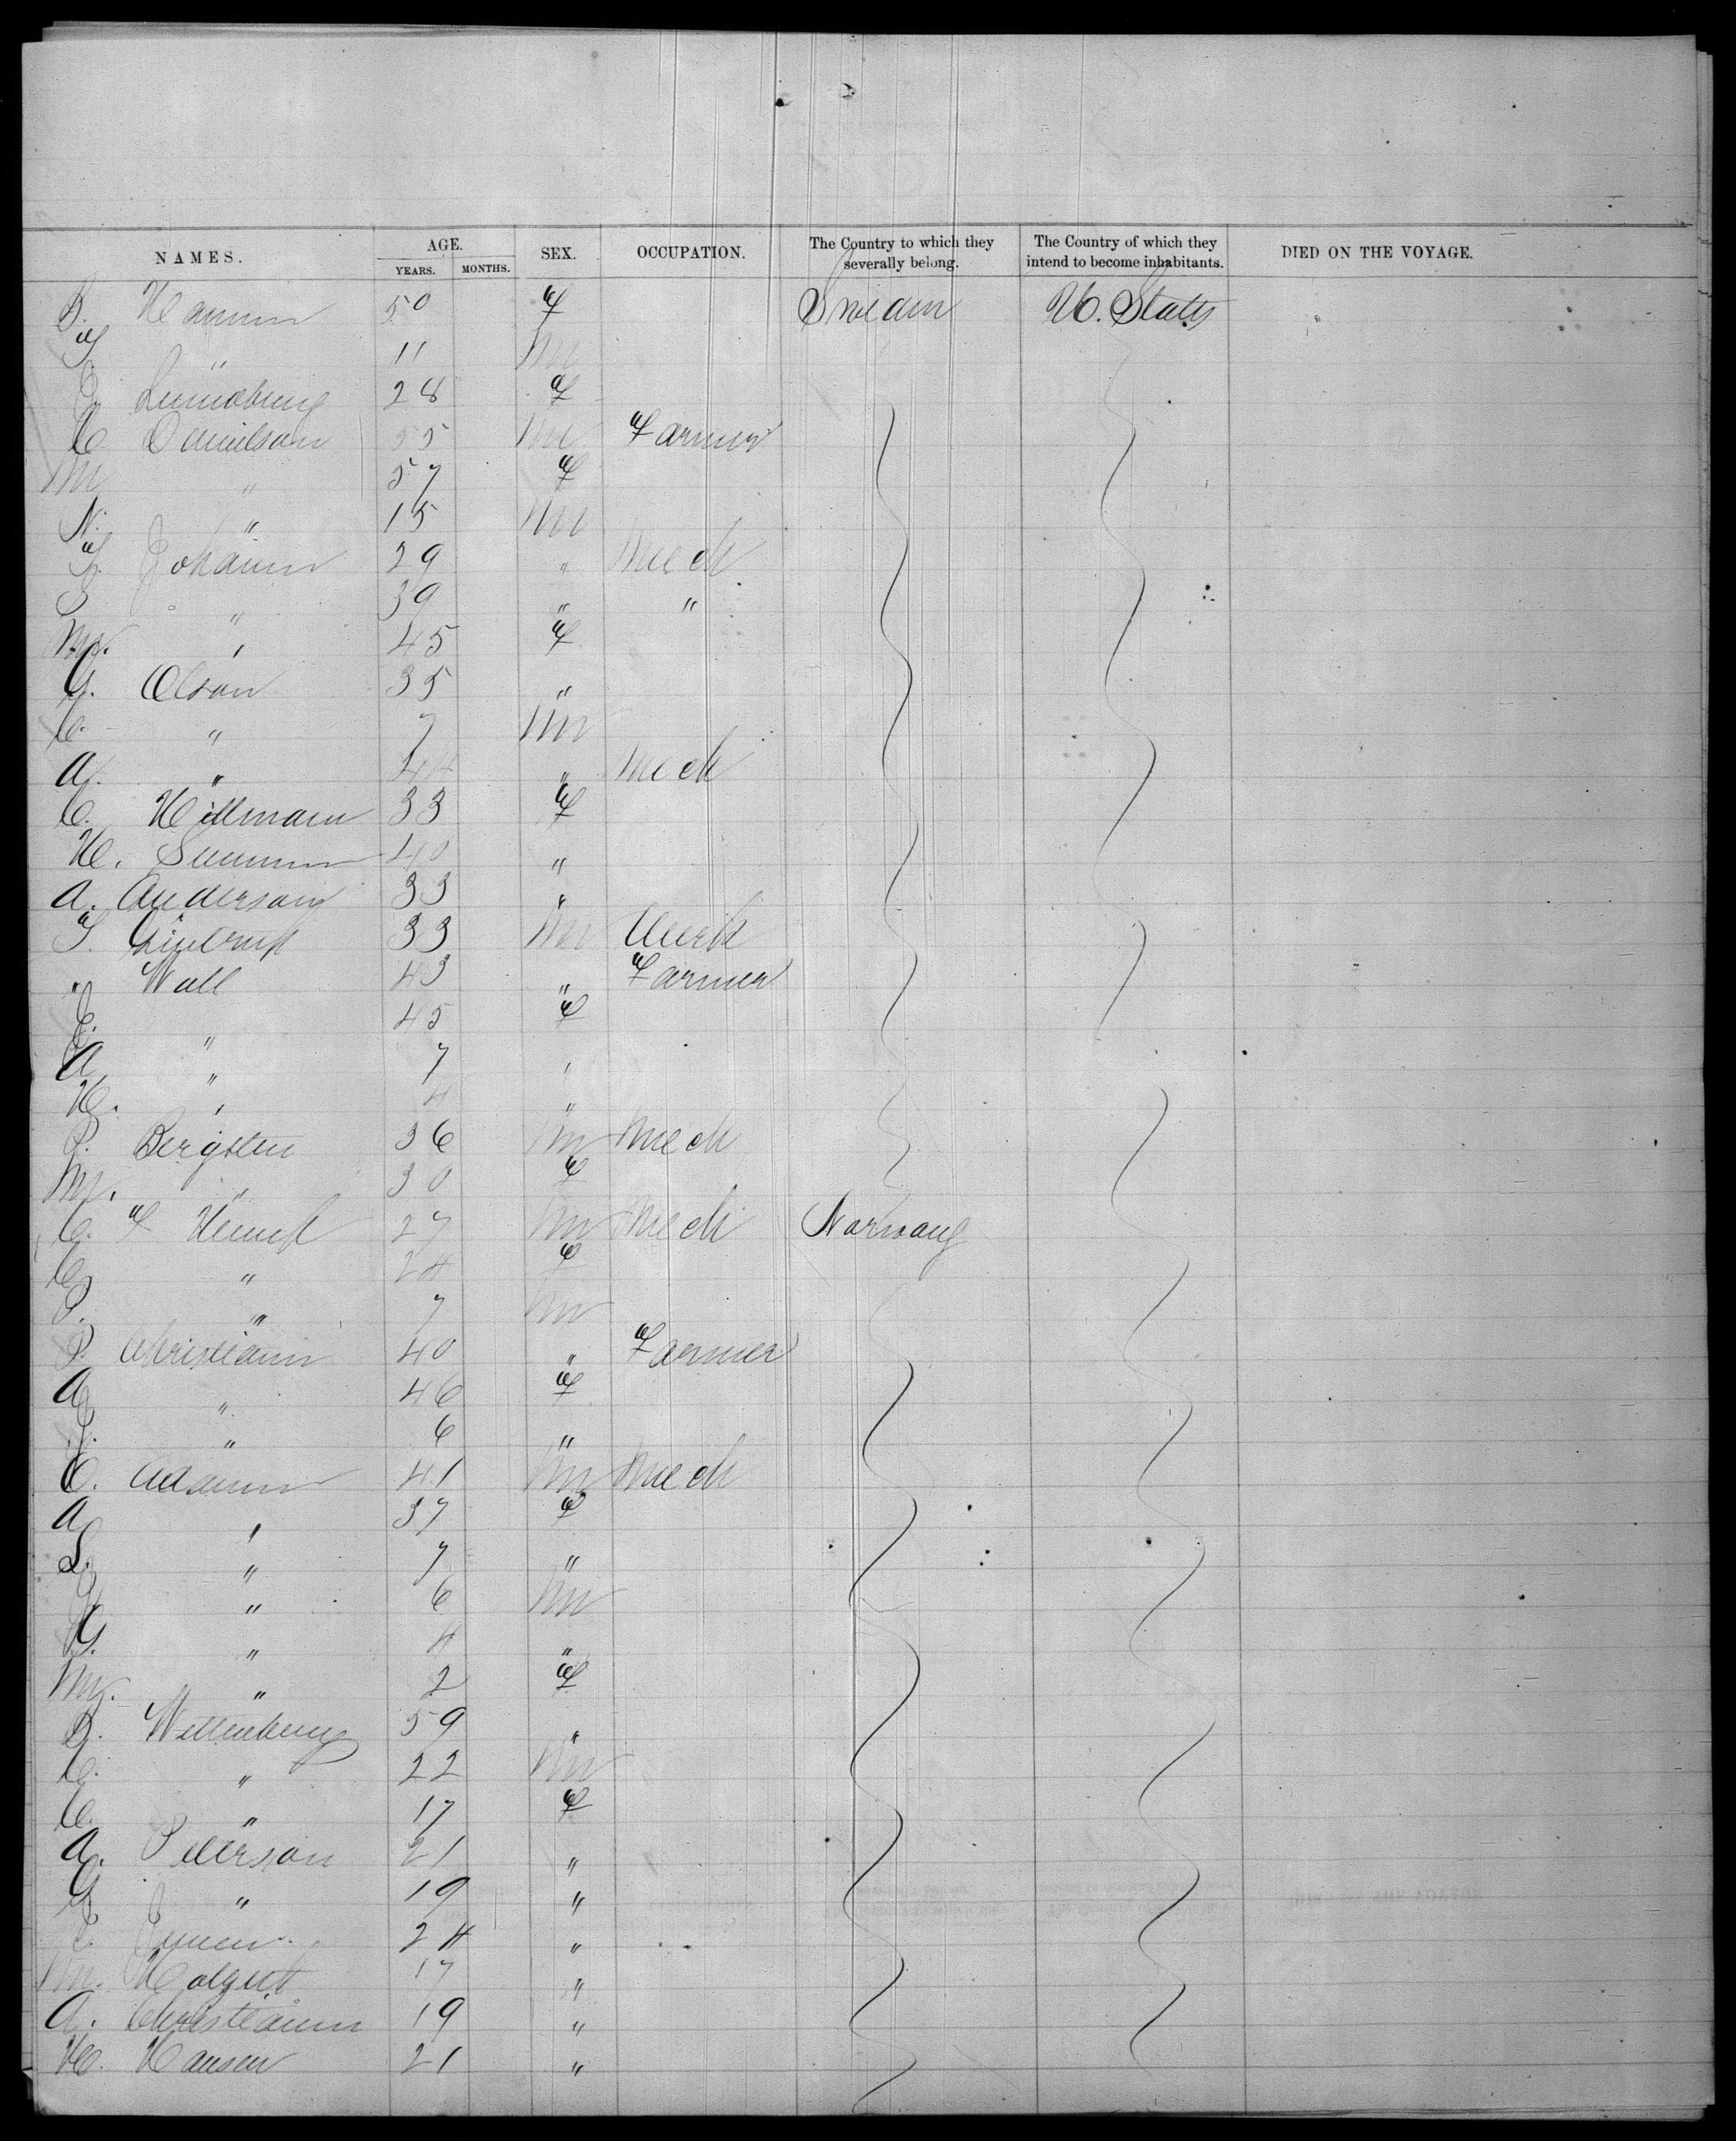 NAMES. AGE. SEX. OCCUPATION. The Country to which they severally belong. The Country of which they intend to become inhabitants. DIED ON THE VOYAGE.
YEARS. MONTHS.
B. 50 F Sweden U. States
" 11 M
28 F
C Danielson 55 M Farmer
M " 57 F
N. " 15 M
Johann 29 " Mech
" 39 " "
M. " 45 F
G. Olson 35 "
C. " 7 M
A. " 44 " Mech
C. Hillmann 33 F
H. 40 "
A. Anderson 33 "
33 M Clerk
" Wall 43 " Farmer
" 45 F
A " 7 "
H. " 4 "
P. Bergsten 36 M Mech
M. " 30 F
C. F 27 M Mech Norway
C " 24 F
P. " 7 M
P. Christiann 40 " Farmer
A " 46 F
" 6 "
C. Adamm 41 M Mech
A " 37 F
L. " 7 "
" 6 M
G. " 4 "
M. " 2 F
B. Wittenberg 59 "
C. " 22 M
C. " 17 F
A. Peterson 21 "
G. " 19 "
24 "
M. 17 "
A. Christiann 19 "
H. Hansen 21 "